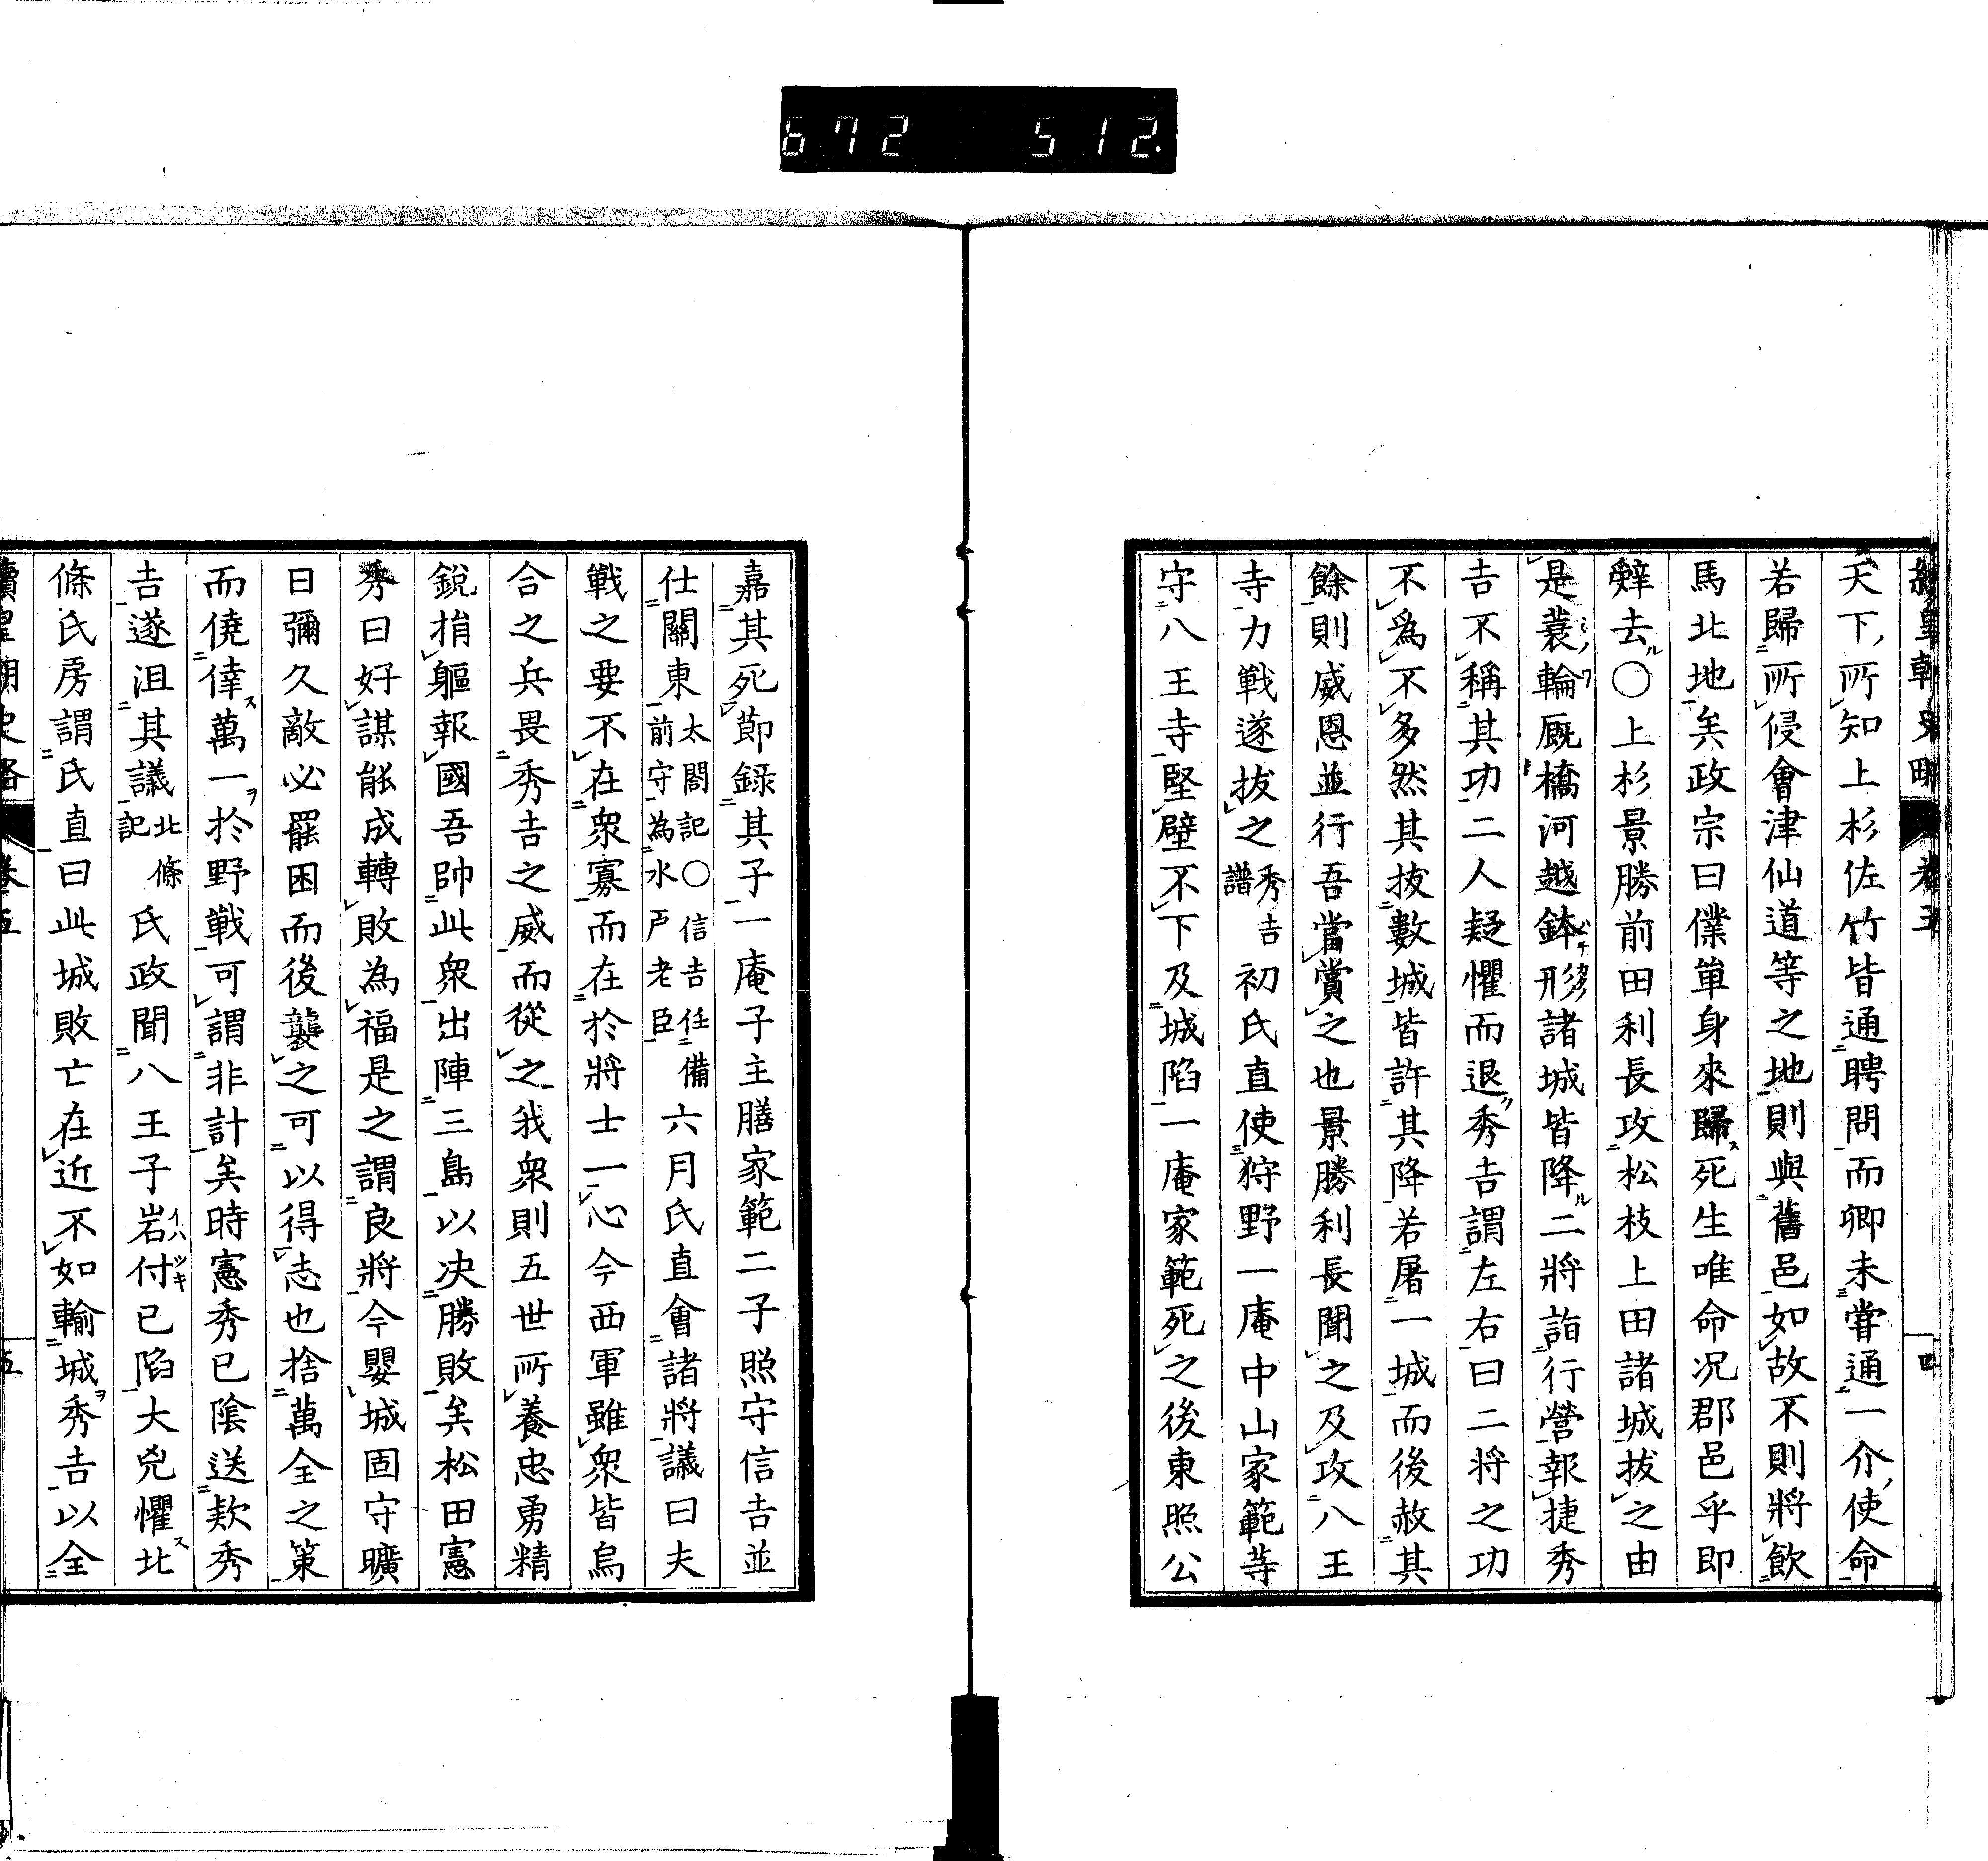 672 512.
續皇朝史略 卷五 四
天下所知上杉佐竹皆通聘問而卿未嘗通一介使命
若歸所侵會津仙道等之地則與舊邑如故不則將飲
馬北地矣政宗曰僕單身來歸死生唯命况郡邑乎即
辤去〇上杉景勝前田利長攻松枝上田諸城拔之由
是蓑輪厩橋河越鉢形諸城皆降二將詣行營報捷秀
吉不稱其功二人疑懼而退秀吉謂左右曰二将之功
不爲不多然其拔數城皆許其降若屠一城而後赦其
餘則威恩並行吾當賞之也景勝利長聞之及攻八王
寺力戰遂拔之秀吉譜初氏直使狩野一庵中山家範等
守八王寺堅壁不下及城陷一庵家範死之後東照公
嘉其死節録其子一庵子主膳家範二子照守信吉並
仕關東太閤記〇信吉任備前守為水戸老臣六月氏直會諸將議曰夫
戰之要不在衆寡而在於將士一心今西軍雖衆皆烏
合之兵畏秀吉之威而從之我衆則五世所養忠勇精
銳捐軀報國吾帥此衆出陣三島以决勝敗矣松田憲
秀曰好謀能成轉敗為福是之謂良將今嬰城固守曠
日彌久敵必罷困而後襲之可以得志也捨萬全之策
而僥倖萬一於野戰可謂非計矣時憲秀已陰送欵秀
吉遂沮其議北條記氏政聞八王子岩付已陷大兇懼北
條氏房謂氏直曰此城敗亡在近不如輸城秀吉以全
續皇朝史略 卷五 五